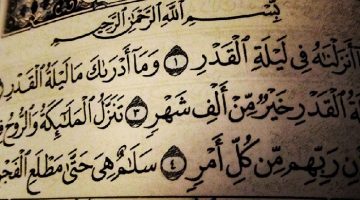 بِسْمِ اللَّهِ الرَّحْمَٰنِ الرَّحِيمِ
أَنزَلْنَٰهُ فِى لَيْلَةِ ٱلْقَدْرِ ١ وَمَآ أَدْرَىٰكَ مَا لَيْلَةُ ٱلْقَدْرِ
ٱلْقَدْرِ خَيْرٌ مِّنْ أَلْفِ شَهْرٍ ٣ تَنَزَّلُ ٱلْمَلَٰٓئِكَةُ وَٱلرُّوحُ
رَبِّهِم مِّن كُلِّ أَمْرٍ ٤ سَلَٰمٌ هِىَ حَتَّىٰ مَطْلَعِ